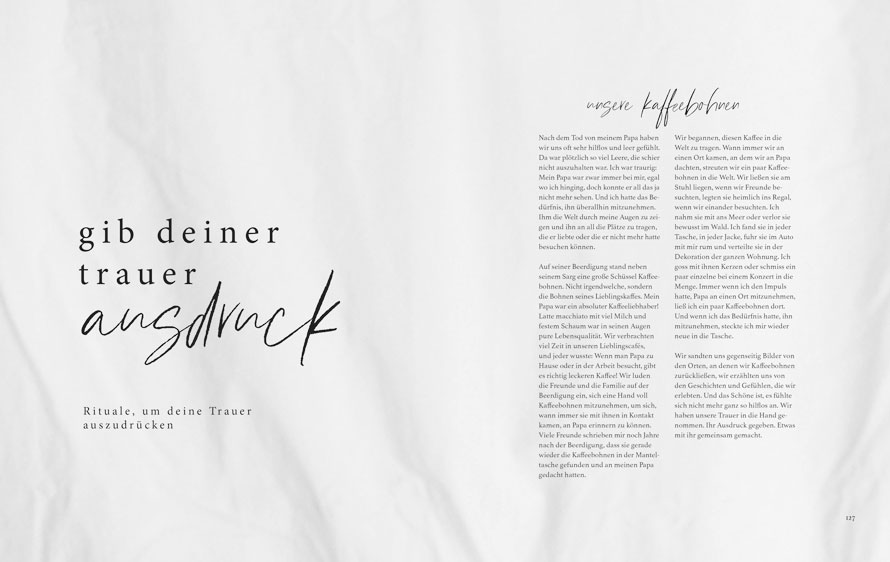 gib deiner
trauer
ausdruck
Rituale, um deine Trauer
auszudrücken
unsere kaffeebohnen
Nach dem Tod von meinem Papa haben
wir uns oft sehr hilflos und leer gefühlt.
Da war plötzlich so viel Leere, die schier
nicht auszuhalten war. Ich war traurig:
Mein Papa war zwar immer bei mir, egal
wo ich hinging, doch konnte er all das ja
nicht mehr sehen. Und ich hatte das Be-
dürfnis, ihn überallhin mitzunehmen.
Ihm die Welt durch meine Augen zu zei-
gen und ihn an all die Plätze zu tragen,
die er liebte oder die er nicht mehr hatte
besuchen können.
Auf seiner Beerdigung stand neben
seinem Sarg eine große Schüssel Kaffee-
bohnen. Nicht irgendwelche, sondern
die Bohnen seines Lieblingskaffes. Mein
Papa war ein absoluter Kaffeeliebhaber!
Latte macchiato mit viel Milch und
festem Schaum war in seinen Augen
pure Lebensqualität. Wir verbrachten
viel Zeit in unseren Lieblingscafés,
und jeder wusste: Wenn man Papa zu
Hause oder in der Arbeit besucht, gibt
es richtig leckeren Kaffee! Wir luden
die Freunde und die Familie auf der
Beerdigung ein, sich eine Hand voll
Kaffeebohnen mitzunehmen, um sich,
wann immer sie mit ihnen in Kontakt
kamen, an Papa erinnern zu können.
Viele Freunde schrieben mir noch Jahre
nach der Beerdigung, dass sie gerade
wieder die Kaffeebohnen in der Mantel-
tasche gefunden und an meinen Papa
gedacht hatten.
Wir begannen, diesen Kaffee in die
Welt zu tragen. Wann immer wir an
einen Ort kamen, an dem wir an Papa
dachten, streuten wir ein paar Kaffee-
bohnen in die Welt. Wir ließen sie am
Stuhl liegen, wenn wir Freunde be-
suchten, legten sie heimlich ins Regal,
wenn wir einander besuchten. Ich
nahm sie mit ans Meer oder verlor sie
bewusst im Wald. Ich fand sie in jeder
Tasche, in jeder Jacke, fuhr sie im Auto
mit mir rum und verteilte sie in der
Dekoration der ganzen Wohnung. Ich
goss mit ihnen Kerzen oder schmiss ein
paar einzelne bei einem Konzert in die
Menge. Immer wenn ich den Impuls
hatte, Papa an einen Ort mitzunehmen,
ließ ich ein paar Kaffeebohnen dort.
Und wenn ich das Bedürfnis hatte, ihn
mitzunehmen, steckte ich mir wieder
neue in die Tasche.
Wir sandten uns gegenseitig Bilder von
den Orten, an denen wir Kaffeebohnen
zurückließen, wir erzählten uns von
den Geschichten und Gefühlen, die wir
erlebten. Und das Schöne ist, es fühlte
sich nicht mehr ganz so hilflos an. Wir
haben unsere Trauer in die Hand ge-
nommen. Ihr Ausdruck gegeben. Etwas
mit ihr gemeinsam gemacht.
127